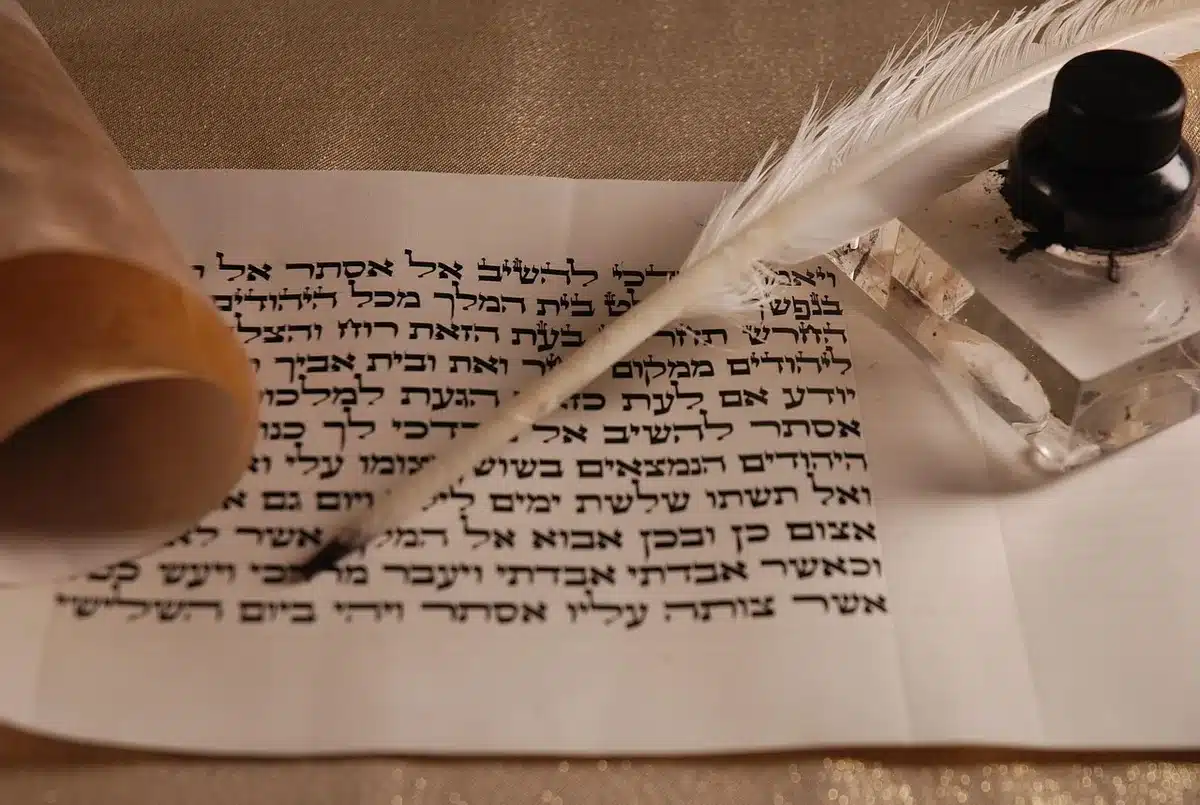 ויאמר להשיב אל אסתר אל
בנפשך בית המלך מכל היהודים
החרש בעת הזאת רוח והצל
ליהודים ממקום ואת ובית אביך
יודע אם לעת הגעת למלכו
אסתר להשיב אל לך כנו
היהודים הנמצאים עלי
ואל תשתו שלשת ימים ויום גם
אצום כן ובכן אבוא אל אשר
וכאשר אבדתי אבדתי ויעבר ויעש
אשר צותה עליו אסתר ויהי ביום השלישי